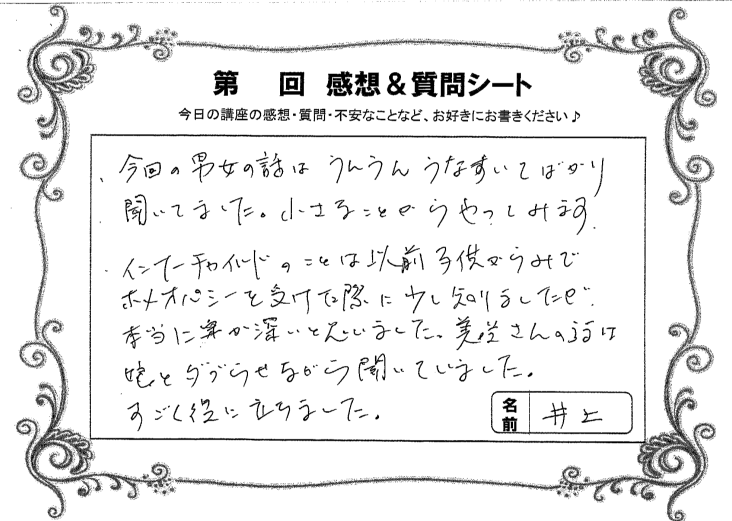 第　回 感想&質問シート
今日の講座の感想・質問・不安なことなど、お好きにお書きください♪
・今回の男女の話は うんうん うなずいてばかり
聞いてました。小さなことからやってみます
・インナーチャイルドのことは以前子供がらみで
ホメオパシーを受けた際に少し知りましたが、
本当に奥が深いと思いました。さんの話は
娘とダブらせながら聞いていました。
すごく役に立ちました。
名前 井上